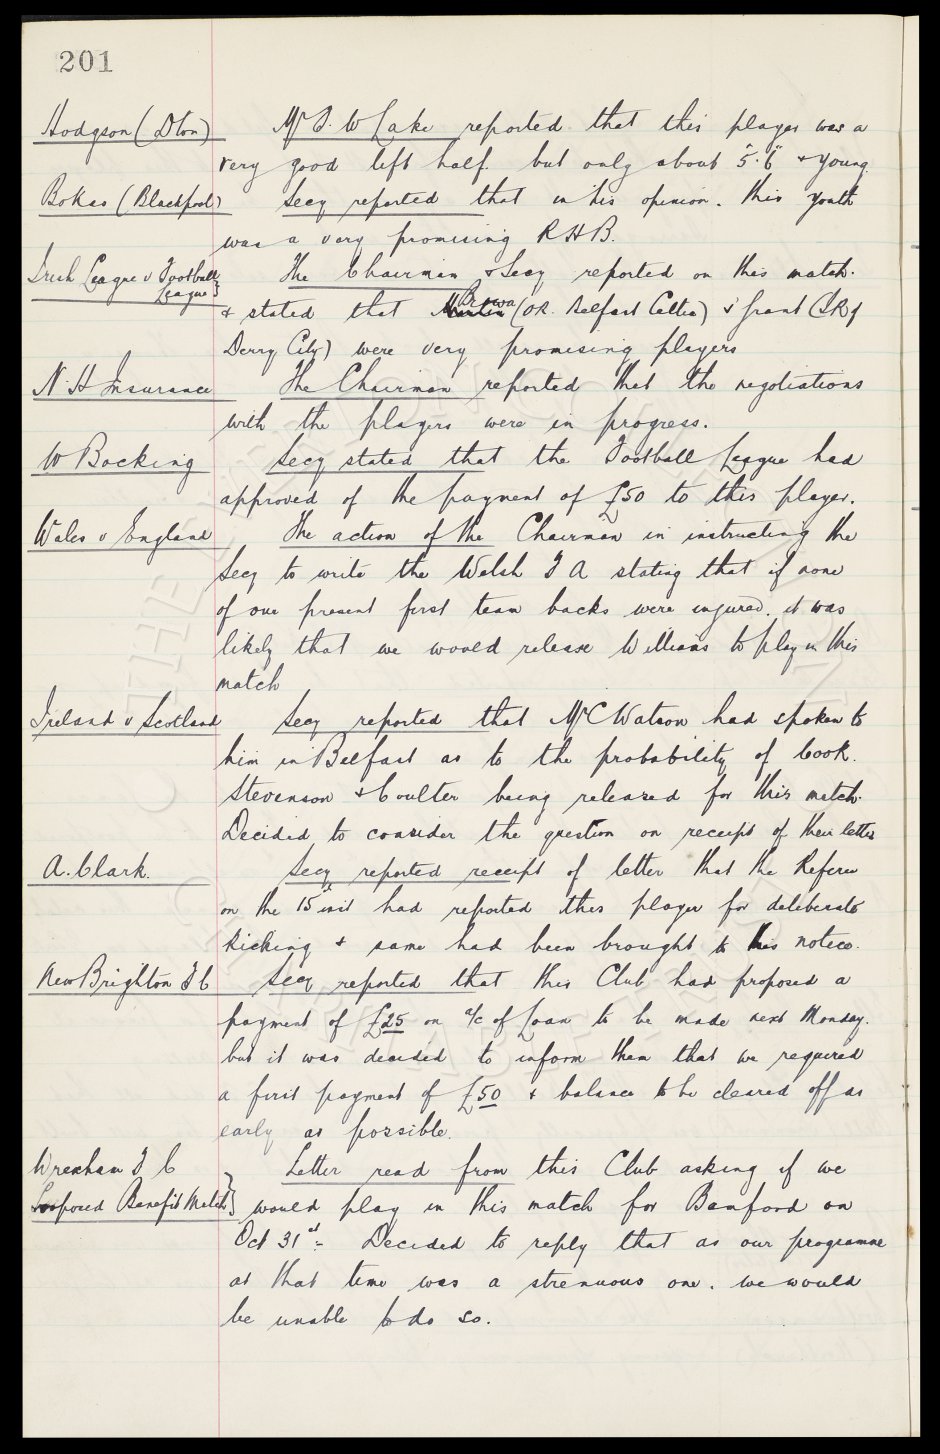 201
Hodgson (Dton) Mr J. W Lake reported that this player was a
very good left half. but only about 5'.6" & young.
Bokas (Blackpool) Secy reported that in his opinion. this youth
was a very promising R H B.
Irish League v Football The Chairman & Secy reported on this match.
League}
Brown
& stated that (OR. Belfast Celtic) & Grant (IR of
Derry City) were very promising players
N. H Insurance The Chairman reported that the negotiations
with the players were in progress.
W Bocking Secy stated that the Football League had
approved of the payment of £50 to this player.
Wales v England The action of the Chairman in instructing the
Secy to write the Welsh F A stating that if none
of our present first team backs were injured. it was
likely that we would release Williams to play in this
match
Ireland v Scotland Secy reported that Mr C Watson had spoken to
him in Belfast as to the probability of Cook.
Stevenson & Coulter being released for this match.
Decided to consider the question on receipt of their letter
A. Clark. Secy reported receipt of letter that the Referee
on the 15th inst had reported this player for deliberate
kicking & same had been brought to his notice.
New Brighton F C Secy reported that this Club had proposed a
payment of £25 on a/c of Loan to be made next Monday.
but it was decided to inform them that we required
a first payment of £50 & balance to be cleared off as
early as possible.
Wrexham F C Letter read from this Club asking if we
Proposed Benefit Match} would play in this match for Bamford on
Oct 31st. Decided to reply that as our programme
at that time was a strenuous one. we would
be unable to do so.